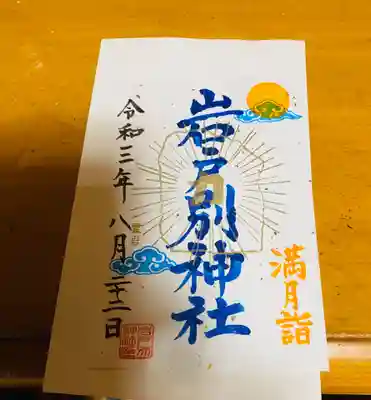 満月詣
岩戸別神社
令和三年八月二十二日